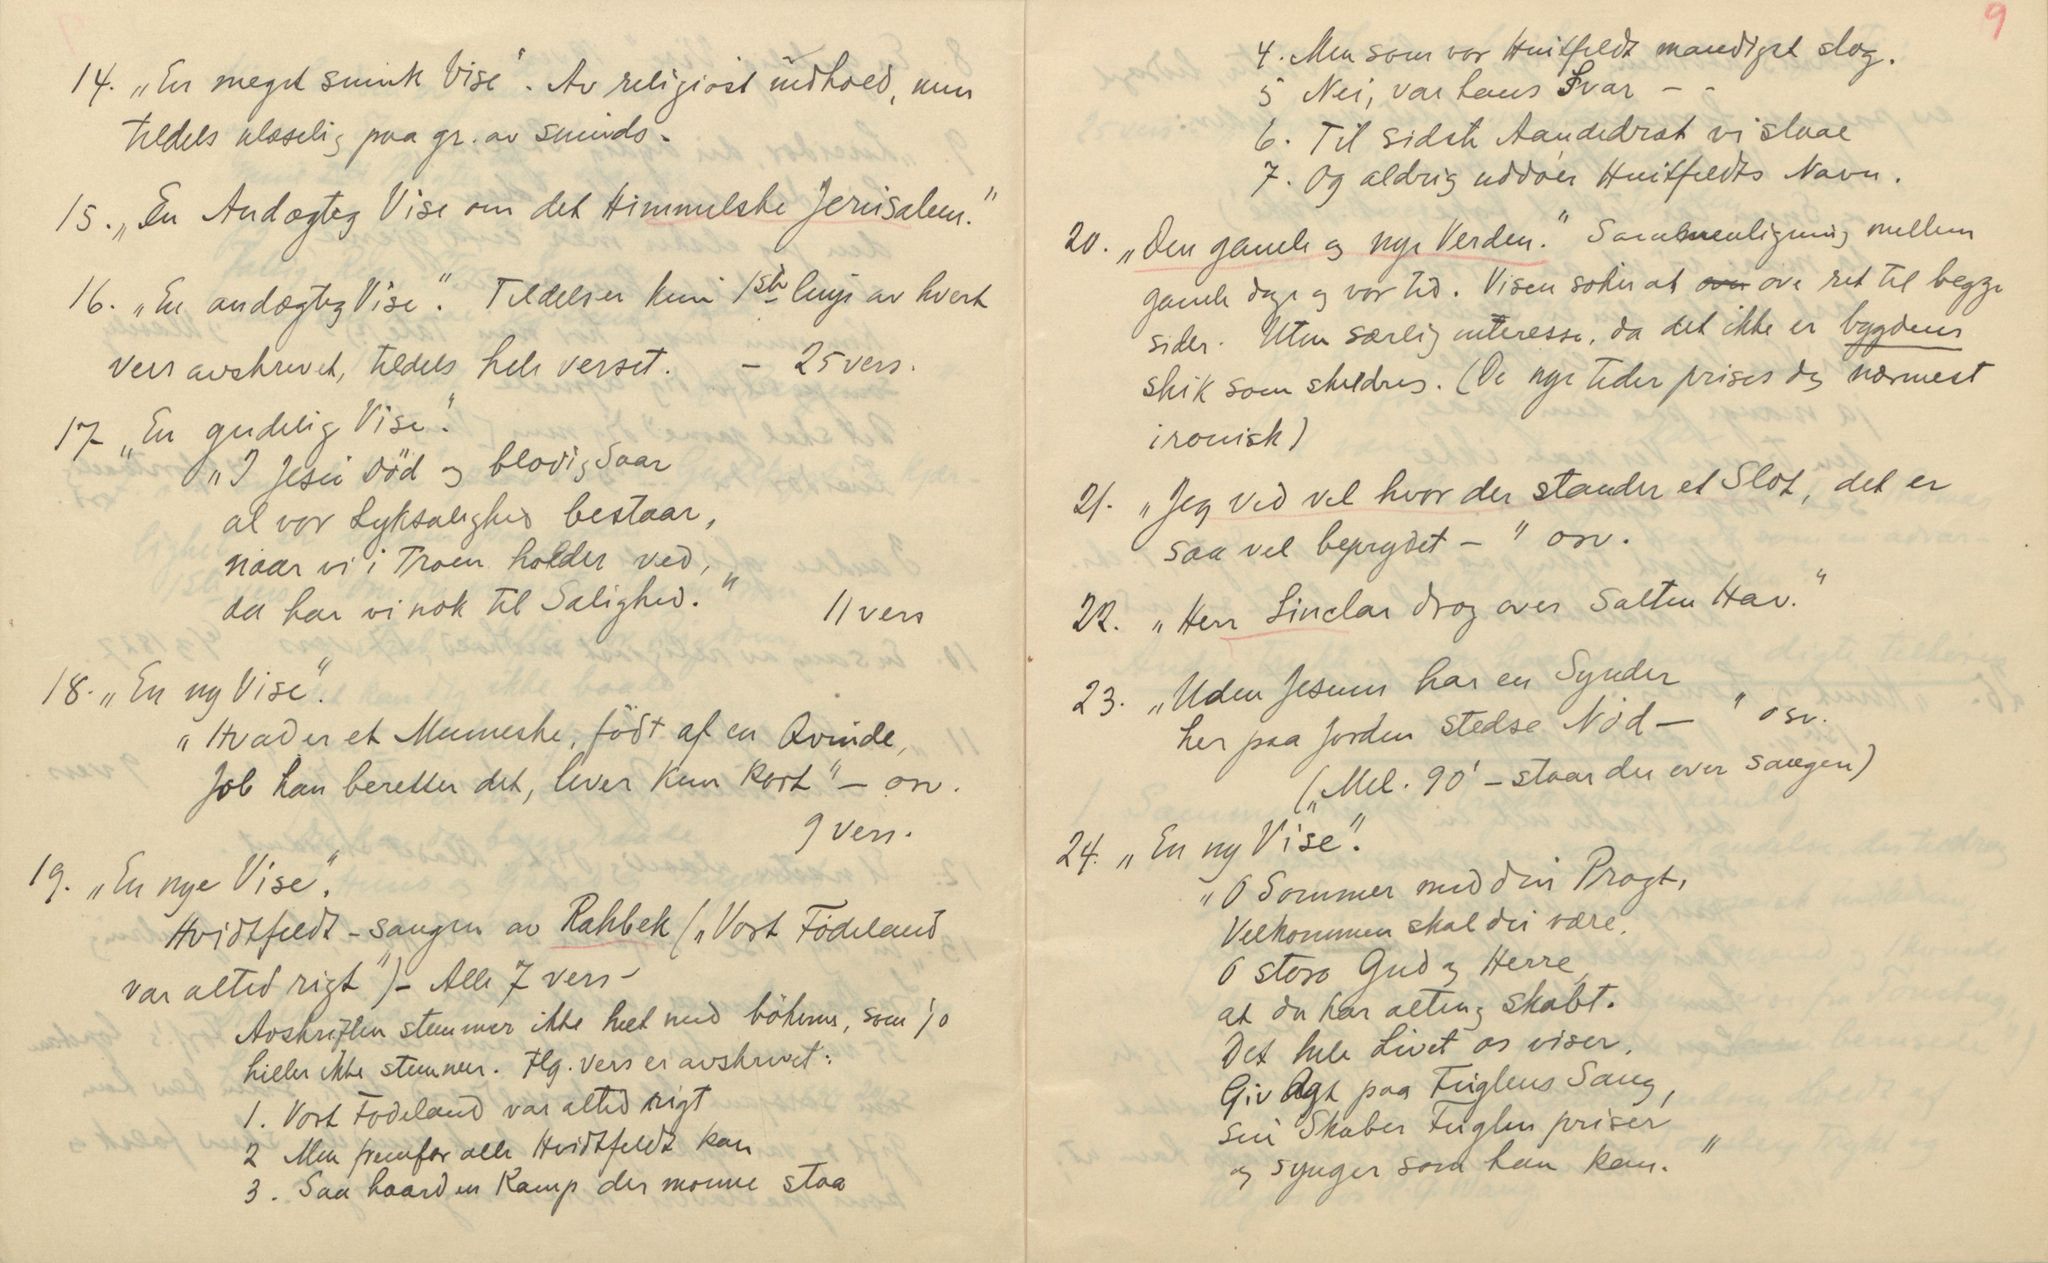 14. „En meget smuk Vise". Av religiøst indhold, men
tildels ulæselig paa gr. av smuds.
15. „En Andægteg Vise om det Himmelske Jerusalem."
16. „En andægteg Vise". Tildels er kun 1ste linje av hvert
vers avskrevet, tildels hele verset. – 25 vers.
17 „En gudelig Vise".
„I Jesu Död og blodig Saar
al vor Lyksalighed bestaar,
naar vi i Troen holder ved,
da har vi nok til Salighed."
11 vers
18. „En ny Vise".
„Hvad er et Menneske, födt af en Qvinde,
Job han beretter det, lever kun kort" – osv.
9 vers.
19. „En nye Vise".
Hvidtfeldt-sangen av Rahbek („Vort Födeland
var altid rigt") – Alle 7 vers –
Avskriften stemmer ikke helt med bökerne, som jo
heller ikke stemmer. Flg. vers er avskrevet:
1. Vort Födeland var altid rigt
2 Men fremfor alle Hvidtfeldt kan
3. Saa haard en Kamp der monne staa
9
4. Men som vor Huitfeldt mandigst slog.
5 Nei, var hans Svar – –
6. Til sidste Aandedræt vi slaae
7. Og aldrig uddöer Huitfeldts Navn.
20. „Den gamle og nye Verden." Sammenligning mellem
gamle dage og vor tid. Visen søker at øve ret til begge
sider. Uten særlig interesse, da det ikke er bygdens
skik som skildres. (De nye tider prises dog nærmest
ironisk)
21. „Jeg ved vel hvor der stander et Slot, det er
saa vel beprydet – " osv.
22. „Herr Sinclar drog over Salten Hav."
23. „Uden Jesum har en Synder
her paa Jorden stedse Nöd – " osv.
(„Mel. 90' – staar der over sangen)
24. „En ny Vise".
„O Sommer med din Pragt,
Velkommen skal du være.
O store Gud og Herre,
at du har alting skabt.
Det hele Livet os viser,
Giv Agt paa Fuglens Sang,
sin Skaber Fuglen priser
og synger som han kan."